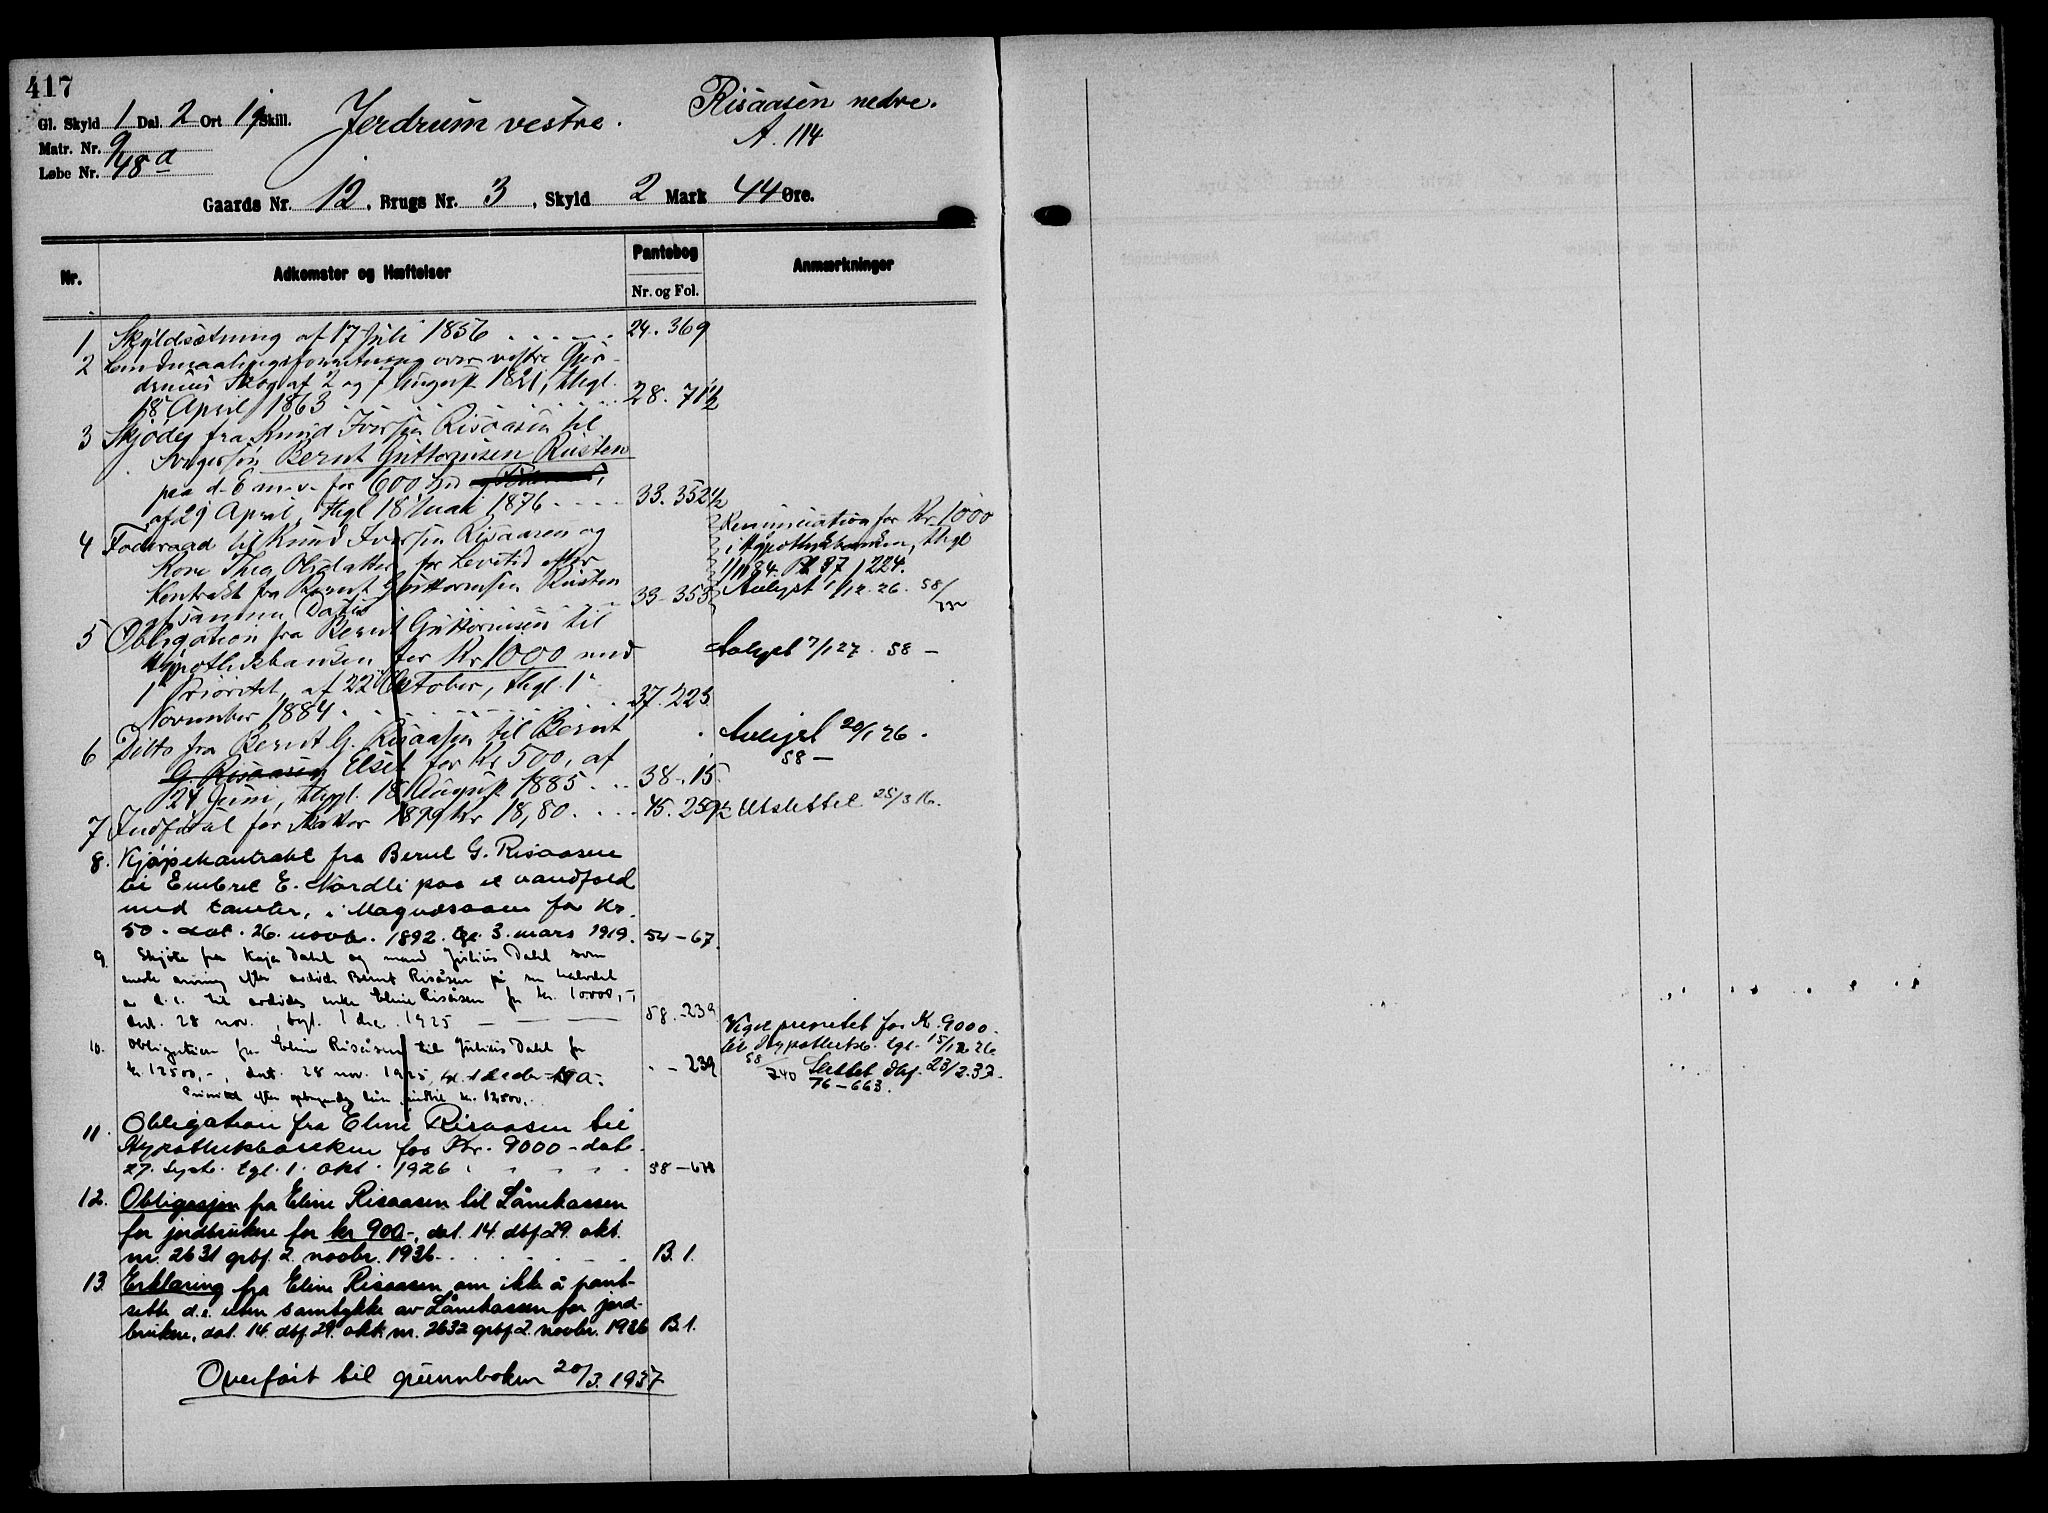 417
Gl. Skyld 1 Dal 2 Ort 19 Skill. Jerdrum vestre. Risaasen nedre.
A. 114
Matr. Nr. 9
Løbe Nr. 48a
Gaards Nr. 12, Brugs Nr. 3, Skyld 2 Mark 44 Øre.
Nr. Adkomster og Hæftelser Pantebog Nr. og Fol. Anmærkninger
1 Skyldsætning af 17 Juli 1856 24. 369
2 vestre Gjer-
drums Skog af 2 og 7 August 1821, thgl.
18 April 1863 28. 71½
3 Skjøde fra Knud Iversen Risaasen til
Svigersøn Bernt Guttormsen Rusten
paa d. E. m. v. for 600 Spd
af 29 April, thgl 18 Mai 1876 33. 352½
4 Føderaad til Knud Iversen Risaasen og
Kone Thea Olsdatter for Levetid efter
Kontrakt fra Bernt Guttormsen Rusten
af samme Dato 33-353
Renunciation for Kr. 1000
i Hypothekbanken, thgl
1/11 84. P 37 / 224.
Avlyst 1/12. 26. 58/
5 Obligation fra Bernt Guttormsen til
Hypothekbanken for Kr 1000 med
1ste Prioritet, af 22 Oktober, thgl. 1ste
November 1884 37. 225
Avlyst 7/1 27. 58 –
6 Ditto fra Bernt G. Risaasen til Bernt
G. Risaasen Elset for Kr 500, af
24 Juni, thgl. 18 August 1885 38-15
Avlyst 20/1 26.
58 –
7 Indførsel for Skatter 1899 Kr 18,80 45. 259½ Utslettet 25/3 16.
8. Kjøpekontrakt fra Bernt G. Risaasen
til Embret E. Nordli paa et vandfald
med tomter, i Magnosaaen for Kr.
50 – dat. 26. novb. 1892. tgl. 3. mars 1919. 54-67.
9. Skjøte fra Kaja Dahl og mand Julius Dahl som
eneste arving efter avdøde Bernt Risåsen på sin halvdel
av d. e. til avdødes enke Eline Risåsen for kr. 10000,-,
dat. 28 nov., tngl. 1 des. 1925 58.-239
10. Obligation fra Eline Risåsen til Julius Dahl for
kr. 12500,-, dat. 28 nov. 1925,
Prioritet efter indtil kr. 12500,-. - - 239
Veget prioritet for Kr. 9000 –
til Hypothekb. tgl. 15/12 26
58/240 Slettet dbf. 23/2. 37.
76-663.
11. Obligation fra Eline Risaasen til
Hypothekbanken for Kr. 9000 – dat.
27. Septb. tgl. 1. okt. 1926 58-678
12. Obligasjon fra Eline Risaasen til Lånekassen
for jordbrukere for kr 900 -, dat. 14. dbf 29. okt.
nr. 2631 grbf. 2. novbr. 1936 B. 1.
13. Erklæring fra Eline Risaasen om ikke å pant-
sette d.e. uten samtykke av Lånekassen for jord-
brukere, dat. 14. dbf 29. okt. nr. 2632 grbf 2. novbr. 1936 B. 1.
Overført til grunnboken 20/3. 1937